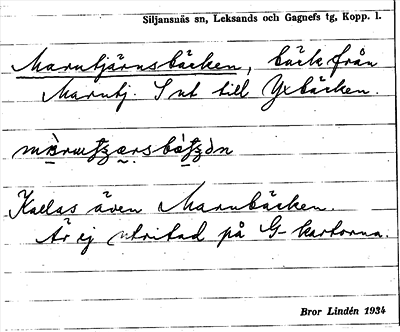 Siljansnäs sn, Leksands och Gagnefs tg, Kopp. l.
Marntjärnsbäcken, bäck från
Marntj. S ut till Yxbäcken.
Kallas även Marnbäcken.
Är ej utritad på G-kartorna.
Bror Lindén 1934